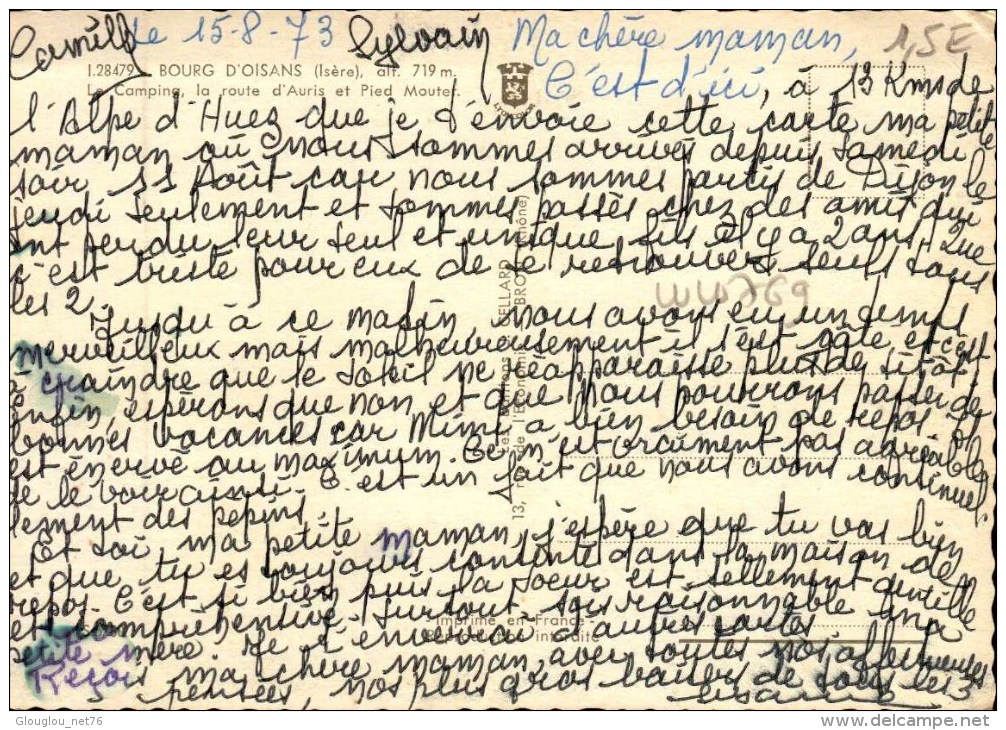 Camille le 15-8-73 Sylvain Ma chère maman, 1,5E
I.28479 BOURG D'OISANS (Isère), alt. 719 m.
Le Camping, la route d'Auris et Pied Moutet.
C'est d'ici, à 13 Kms de
l'Alpe d'Huez que je t'envoie cette carte ma petite
maman où nous sommes arrivés depuis samedi
soir 11 Août car nous sommes partis de Dijon le
jeudi seulement et sommes passés chez des amis qui
ont perdu leur seul et unique fils il y a 2 ans. Que
c'est triste pour eux de se retrouver seuls tous
les 2.
WW769
Jusqu'à ce matin, nous avons eu un temps
merveilleux mais malheureusement il s'est gâté et c'est
à craindre que le soleil ne réapparaisse plus de sitôt.
Enfin, espérons que non et que nous pourrons passer de
bonnes vacances car Mimi a bien besoin de repos. Il
est énervé au maximum. Ce n'est vraiment pas agréable
de le voir ainsi. C'est un fait que nous avons continuel-
lement des pépins.
Et toi, ma petite maman, j'espère que tu vas bien
et que tu es toujours contente dans ta maison de
repos. C'est si bien puis la soeur est tellement gentille
et compréhensive. Surtout sois raisonnable ma
petite mère. Je t'enverrai d'autres cartes
Reçois ma chère maman, avec toutes nos affectueuses
pensées, nos plus gros baisers de tous les 3
Imprimé en France -
Reproduction interdite
Glouglou_net76
www.delcampe.net